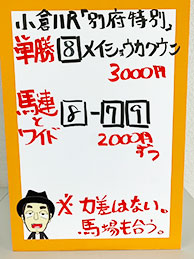 小倉11R「別府特別」
単勝 8 メイショウカクウン
3000円
馬連とワイド 8-79
2000円ずつ
※力差はない。
馬場も合う。